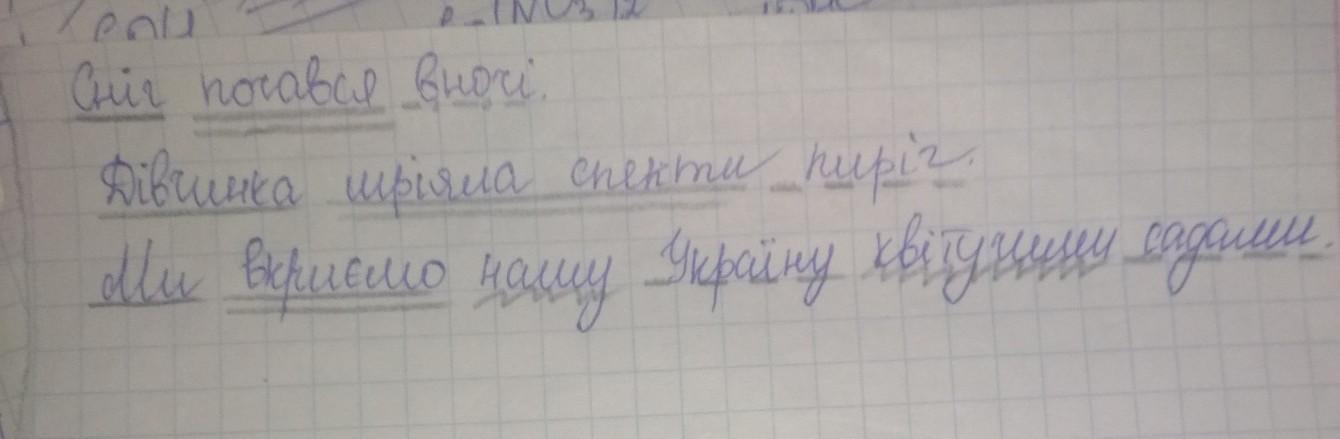 Сніг почався вночі.
Дівчинка мріяла спекти пиріг.
Ми вкриємо нашу Україну квітучими садами.